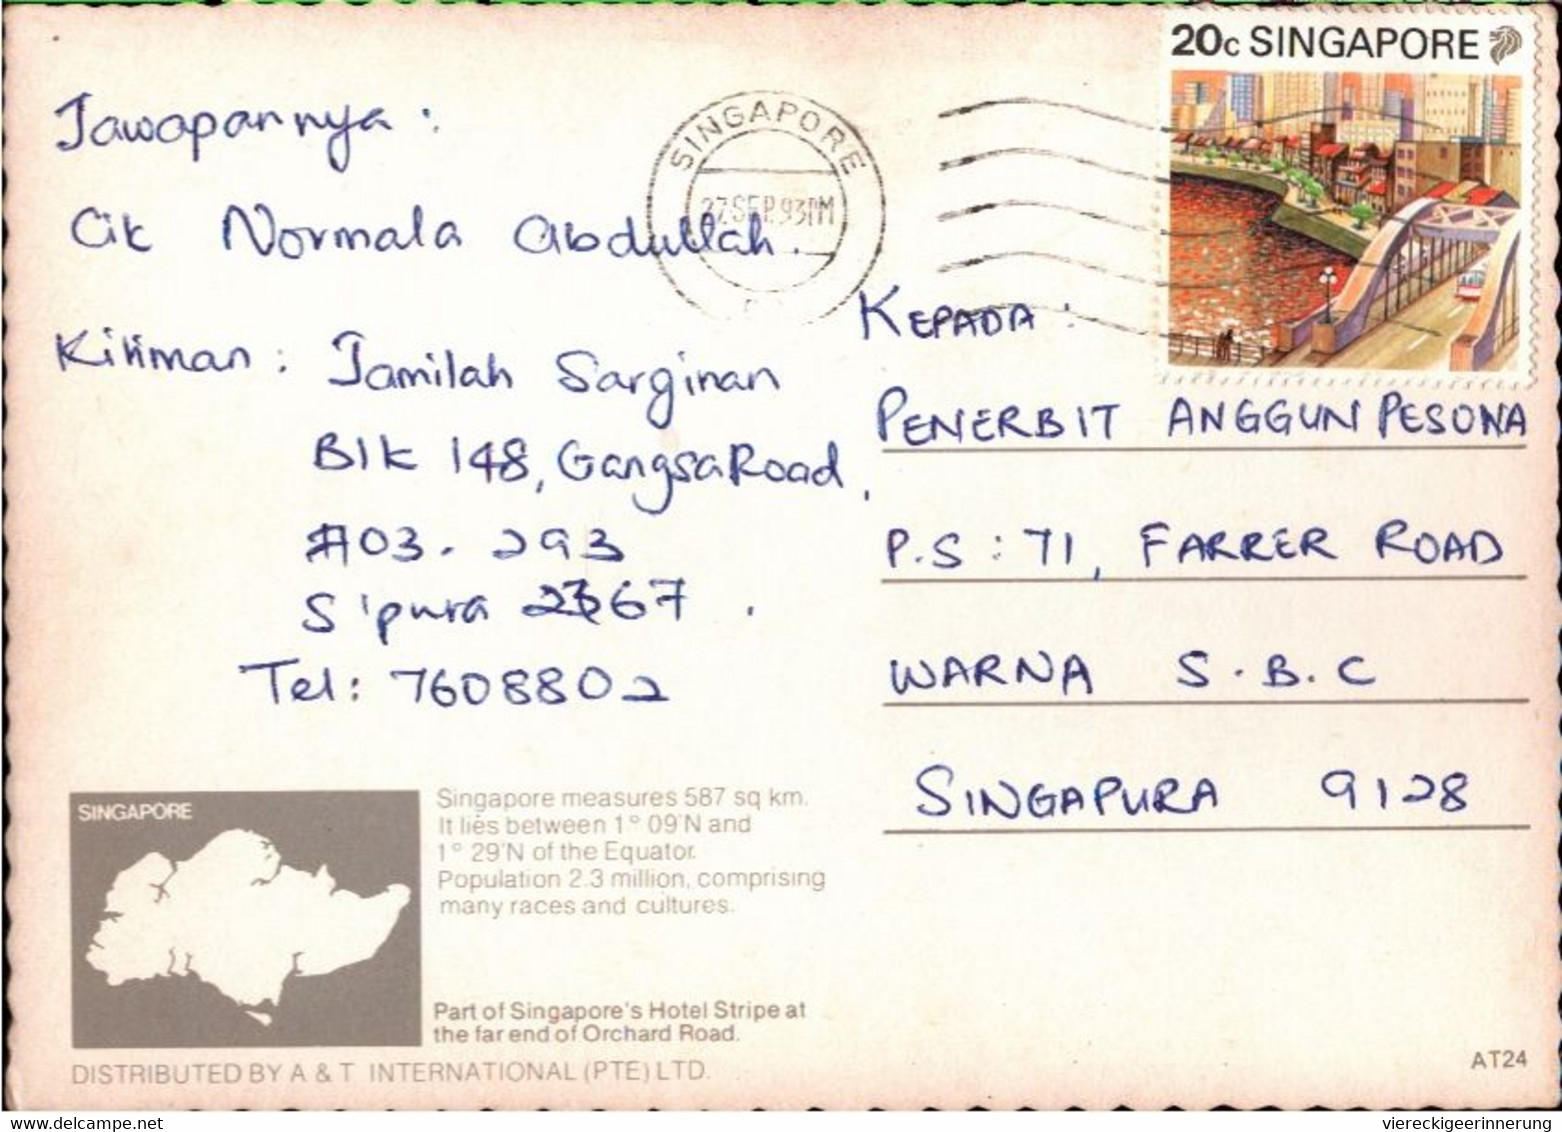 20c SINGAPORE
SINGAPORE
27 SEP 93 PM
Jawapannya :
Cik Normala Abdullah.
Kiriman : Jamilah Sarginan
Blk 148, Gangsa Road,
#03-293
S'pura 2367.
Tel: 7608802
KEPADA :
PENERBIT ANGGUN PESONA
P.S : 71, FARRER ROAD
WARNA S.B.C
SINGAPURA 9128
SINGAPORE
Singapore measures 587 sq km.
It lies between 1° 09'N and
1° 29'N of the Equator.
Population 2.3 million, comprising
many races and cultures.
Part of Singapore's Hotel Stripe at
the far end of Orchard Road.
DISTRIBUTED BY A & T INTERNATIONAL (PTE) LTD.
AT24
viereckigeerinnerung